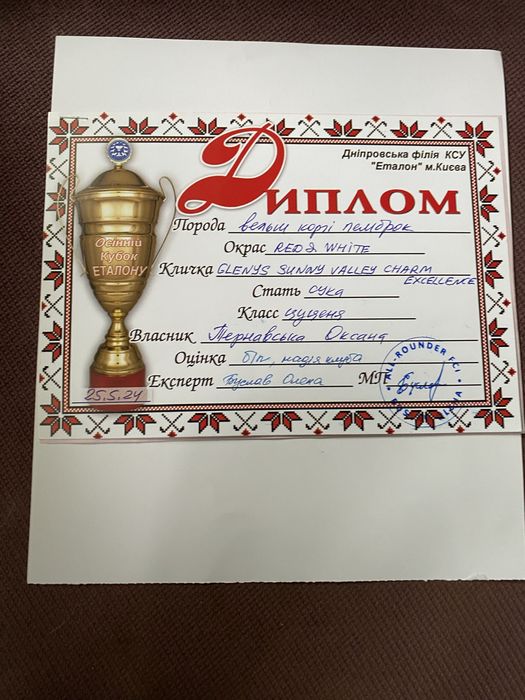 Дніпровська філія КСУ
"Еталон" м.Києва
ДИПЛОМ
Осінній
Кубок
ЕТАЛОНУ
Порода вельш коргі пемброк
Окрас RED & WHITE
Кличка GLENYS SUNNY VALLEY CHARM
EXCELLENCE
Стать сука
Класс цуценя
Власник Тернавська Оксана
Оцінка б/п, надія клуба
Експерт Буслав Олена МП
25.5.24
ALL-ROUNDER FCI